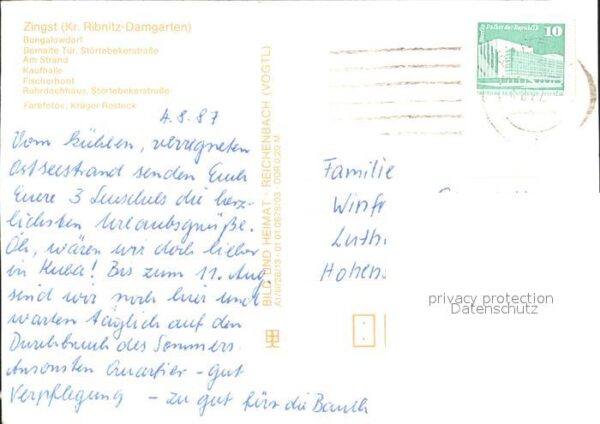 Zingst (Kr. Ribnitz-Damgarten)
Bungalowdorf
Bemalte Tür, Störtebekerstraße
Am Strand
Kaufhalle
Fischerboot
Rohrdachhaus, Störtebekerstraße
Farbfotos: Krüger-Rostock
4.8.87
Vom kühlen, verregneten
Ostseestrand senden Euch
Eure 3 die herz-
lichsten Urlaubsgrüße.
Oh, wären wir doch lieber
in Kuba! Bis zum 11. Aug.
sind wir noch hier und
warten täglich auf den
Durchbruch des Sommers.
Ansonsten Quartier - gut
Verpflegung - zu gut für die Bauch
BILD UND HEIMAT · REICHENBACH (VOGTL)
A1/III/26/13 · 01 01 0678/03 DDR 0,20 M
Palast der Republik
10
Familie
Winfr
Luth
Hohens
privacy protection
Datenschutz